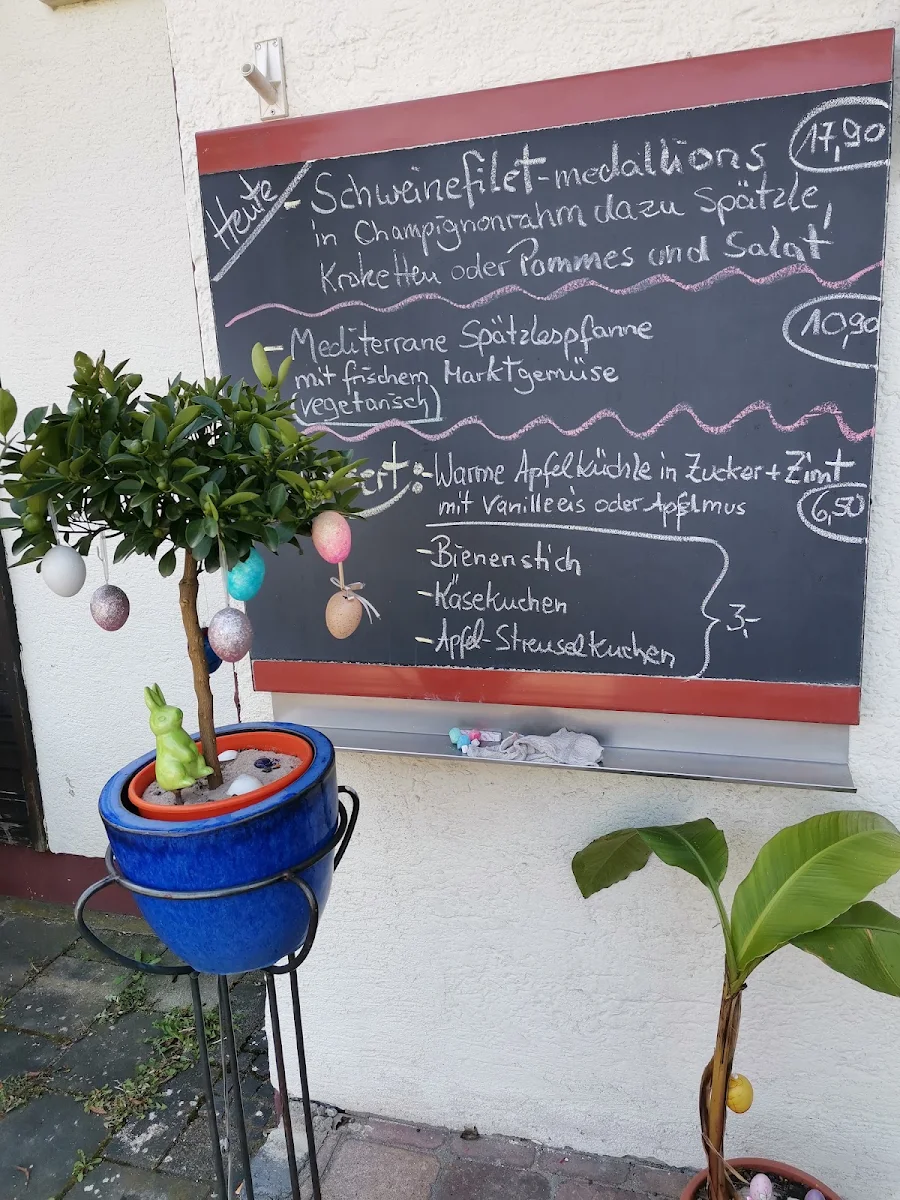 Heute - Schweinefilet-medallions 17,90
in Champignonrahm dazu Spätzle,
Kroketten oder Pommes und Salat
- Mediterrane Spätzlespfanne 10,90
mit frischem Marktgemüse
vegetarisch
ert: - Warme Apfelküchle in Zucker + Zimt
mit Vanilleeis oder Apfelmus 6,50
- Bienenstich
- Käsekuchen 3,-
- Apfel-Streuselkuchen